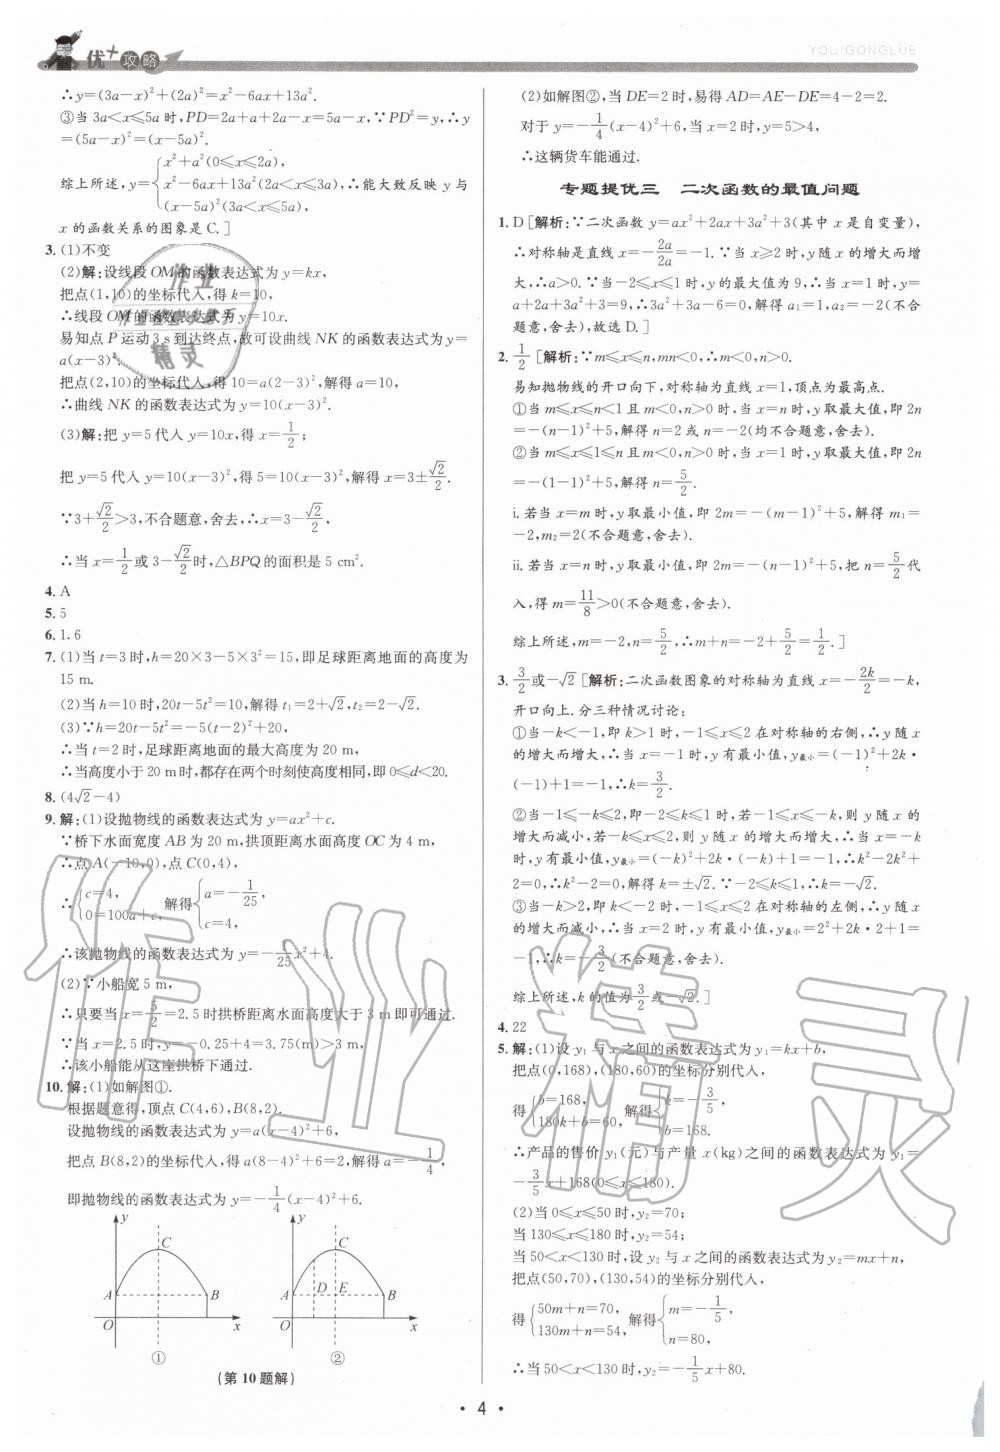 优+攻略
YOU+GONGLÜE
∴y=(3a-x)²+(2a)²=x²-6ax+13a².
③当 3a<x≤5a 时,PD=2a+a+2a-x=5a-x,∵PD²=y,∴y
=(5a-x)²=(x-5a)².
综上所述,y={x²+a²(0≤x≤2a),
x²-6ax+13a²(2a<x≤3a),∴能大致反映 y 与
(x-5a)²(3a<x≤5a),
x 的函数关系的图象是 C.]
3. (1)不变
(2)解:设线段 OM 的函数表达式为 y=kx,
把点(1,10)的坐标代入,得 k=10,
∴线段 OM 的函数表达式为 y=10x.
易知点 P 运动 3 s 到达终点,故可设曲线 NK 的函数表达式为 y=
a(x-3)².
把点(2,10)的坐标代入,得 10=a(2-3)²,解得 a=10,
∴曲线 NK 的函数表达式为 y=10(x-3)².
(3)解:把 y=5 代入 y=10x,得 x=1/2;
把 y=5 代入 y=10(x-3)²,得 5=10(x-3)²,解得 x=3±√2/2.
∵3+√2/2>3,不合题意,舍去,∴x=3-√2/2,
∴当 x=1/2或 3-√2/2时,△BPQ 的面积是 5 cm².
4. A
5. 5
6. 1.6
7. (1)当 t=3 时,h=20×3-5×3²=15,即足球距离地面的高度为
15 m.
(2)当 h=10 时,20t-5t²=10,解得 t₁=2+√2,t₂=2-√2.
(3)∵h=20t-5t²=-5(t-2)²+20,
∴当 t=2 时,足球距离地面的最大高度为 20 m,
∴当高度小于 20 m 时,都存在两个时刻使高度相同,即 0≤d<20.
8. (4√2-4)
9. 解:(1)设抛物线的函数表达式为 y=ax²+c.
∵桥下水面宽度 AB 为 20 m,拱顶距离水面高度 OC 为 4 m,
∴点 A(-10,0),点 C(0,4),
∴{c=4,
0=100a+c, 解得{a=-1/25,
c=4,
∴该抛物线的函数表达式为 y=-1/25x²+4.
(2)∵小船宽 5 m,
∴只要当 x=5/2=2.5 时拱桥距离水面高度大于 3 m 即可通过.
∵当 x=2.5 时,y=-0.25+4=3.75(m)>3 m,
∴该小船能从这座拱桥下通过.
10. 解:(1)如解图①.
根据题意得,顶点 C(4,6),B(8,2).
设抛物线的函数表达式为 y=a(x-4)²+6,
把点 B(8,2)的坐标代入,得 a(8-4)²+6=2,解得 a=-1/4,
即抛物线的函数表达式为 y=-1/4(x-4)²+6.
y C A B O x ①
y C A D E B O x ②
(第 10 题解)
(2)如解图②,当 DE=2 时,易得 AD=AE-DE=4-2=2.
对于 y=-1/4(x-4)²+6,当 x=2 时,y=5>4,
∴这辆货车能通过.
专题提优三 二次函数的最值问题
1. D [解析:∵二次函数 y=ax²+2ax+3a²+3(其中 x 是自变量),
∴对称轴是直线 x=-2a/2a=-1.∵当 x≥2 时,y 随 x 的增大而增
大,∴a>0.∵当-2≤x≤1 时,y 的最大值为 9,∴当 x=1 时,y=
a+2a+3a²+3=9,∴3a²+3a-6=0,解得 a₁=1,a₂=-2(不合
题意,舍去),故选 D.]
2. 1/2 [解析:∵m≤x≤n,mn<0,∴m<0,n>0.
易知抛物线的开口向下,对称轴为直线 x=1,顶点为最高点.
①当 m≤x≤n<1 且 m<0,n>0 时,当 x=n 时,y 取最大值,即 2n
=-(n-1)²+5,解得 n=2 或 n=-2(均不合题意,舍去).
②当 m≤x≤1≤n 时,m<0,n>0 时,当 x=1 时,y 取最大值,即 2n
=-(1-1)²+5,解得 n=5/2.
i. 若当 x=m 时,y 取最小值,即 2m=-(m-1)²+5,解得 m₁=
-2,m₂=2(不合题意,舍去).
ii. 若当 x=n 时,y 取最小值,即 2m=-(n-1)²+5,把 n=5/2代
入,得 m=11/8>0(不合题意,舍去).
综上所述,m=-2,n=5/2,∴m+n=-2+5/2=1/2.]
3. 3/2或-√2 [解析:二次函数图象的对称轴为直线 x=-2k/2=-k,
开口向上.分三种情况讨论:
①当-k<-1,即 k>1 时,-1≤x≤2 在对称轴的右侧,∴y 随 x
的增大而增大,∴当 x=-1 时,y 有最小值,y最小=(-1)²+2k·
(-1)+1=-1,∴k=3/2.
②当-1≤-k≤2,即-2≤k≤1 时,若-1≤x≤-k,则 y 随 x 的
增大而减小,若-k≤x≤2,则 y 随 x 的增大而增大,∴当 x=-k
时,y 有最小值,y最小=(-k)²+2k·(-k)+1=-1,∴k²-2k²+
2=0,∴k²-2=0,解得 k=±√2.∵-2≤k≤1,∴k=-√2.
③当-k>2,即 k<-2 时,-1≤x≤2 在对称轴的左侧,∴y 随 x
的增大而减小,∴当 x=2 时,y 有最小值,y最小=2²+2k·2+1=
-1,∴k=-3/2(不合题意,舍去).
综上所述,k 的值为3/2或-√2.]
4. 22
5. 解:(1)设 y₁ 与 x 之间的函数表达式为 y₁=kx+b,
把点(0,168),(180,60)的坐标分别代入,
得{b=168,
180k+b=60, 解得{k=-3/5,
b=168.
∴产品的售价 y₁(元)与产量 x(kg)之间的函数表达式为 y₁=
-3/5x+168(0≤x≤180).
(2)当 0≤x≤50 时,y₂=70;
当 130≤x≤180 时,y₂=54;
当 50<x<130 时,设 y₂ 与 x 之间的函数表达式为 y₂=mx+n,
把点(50,70),(130,54)的坐标分别代入,
得{50m+n=70,
130m+n=54, 解得{m=-1/5,
n=80,
∴当 50<x<130 时,y₂=-1/5x+80.
· 4 ·
作业精灵